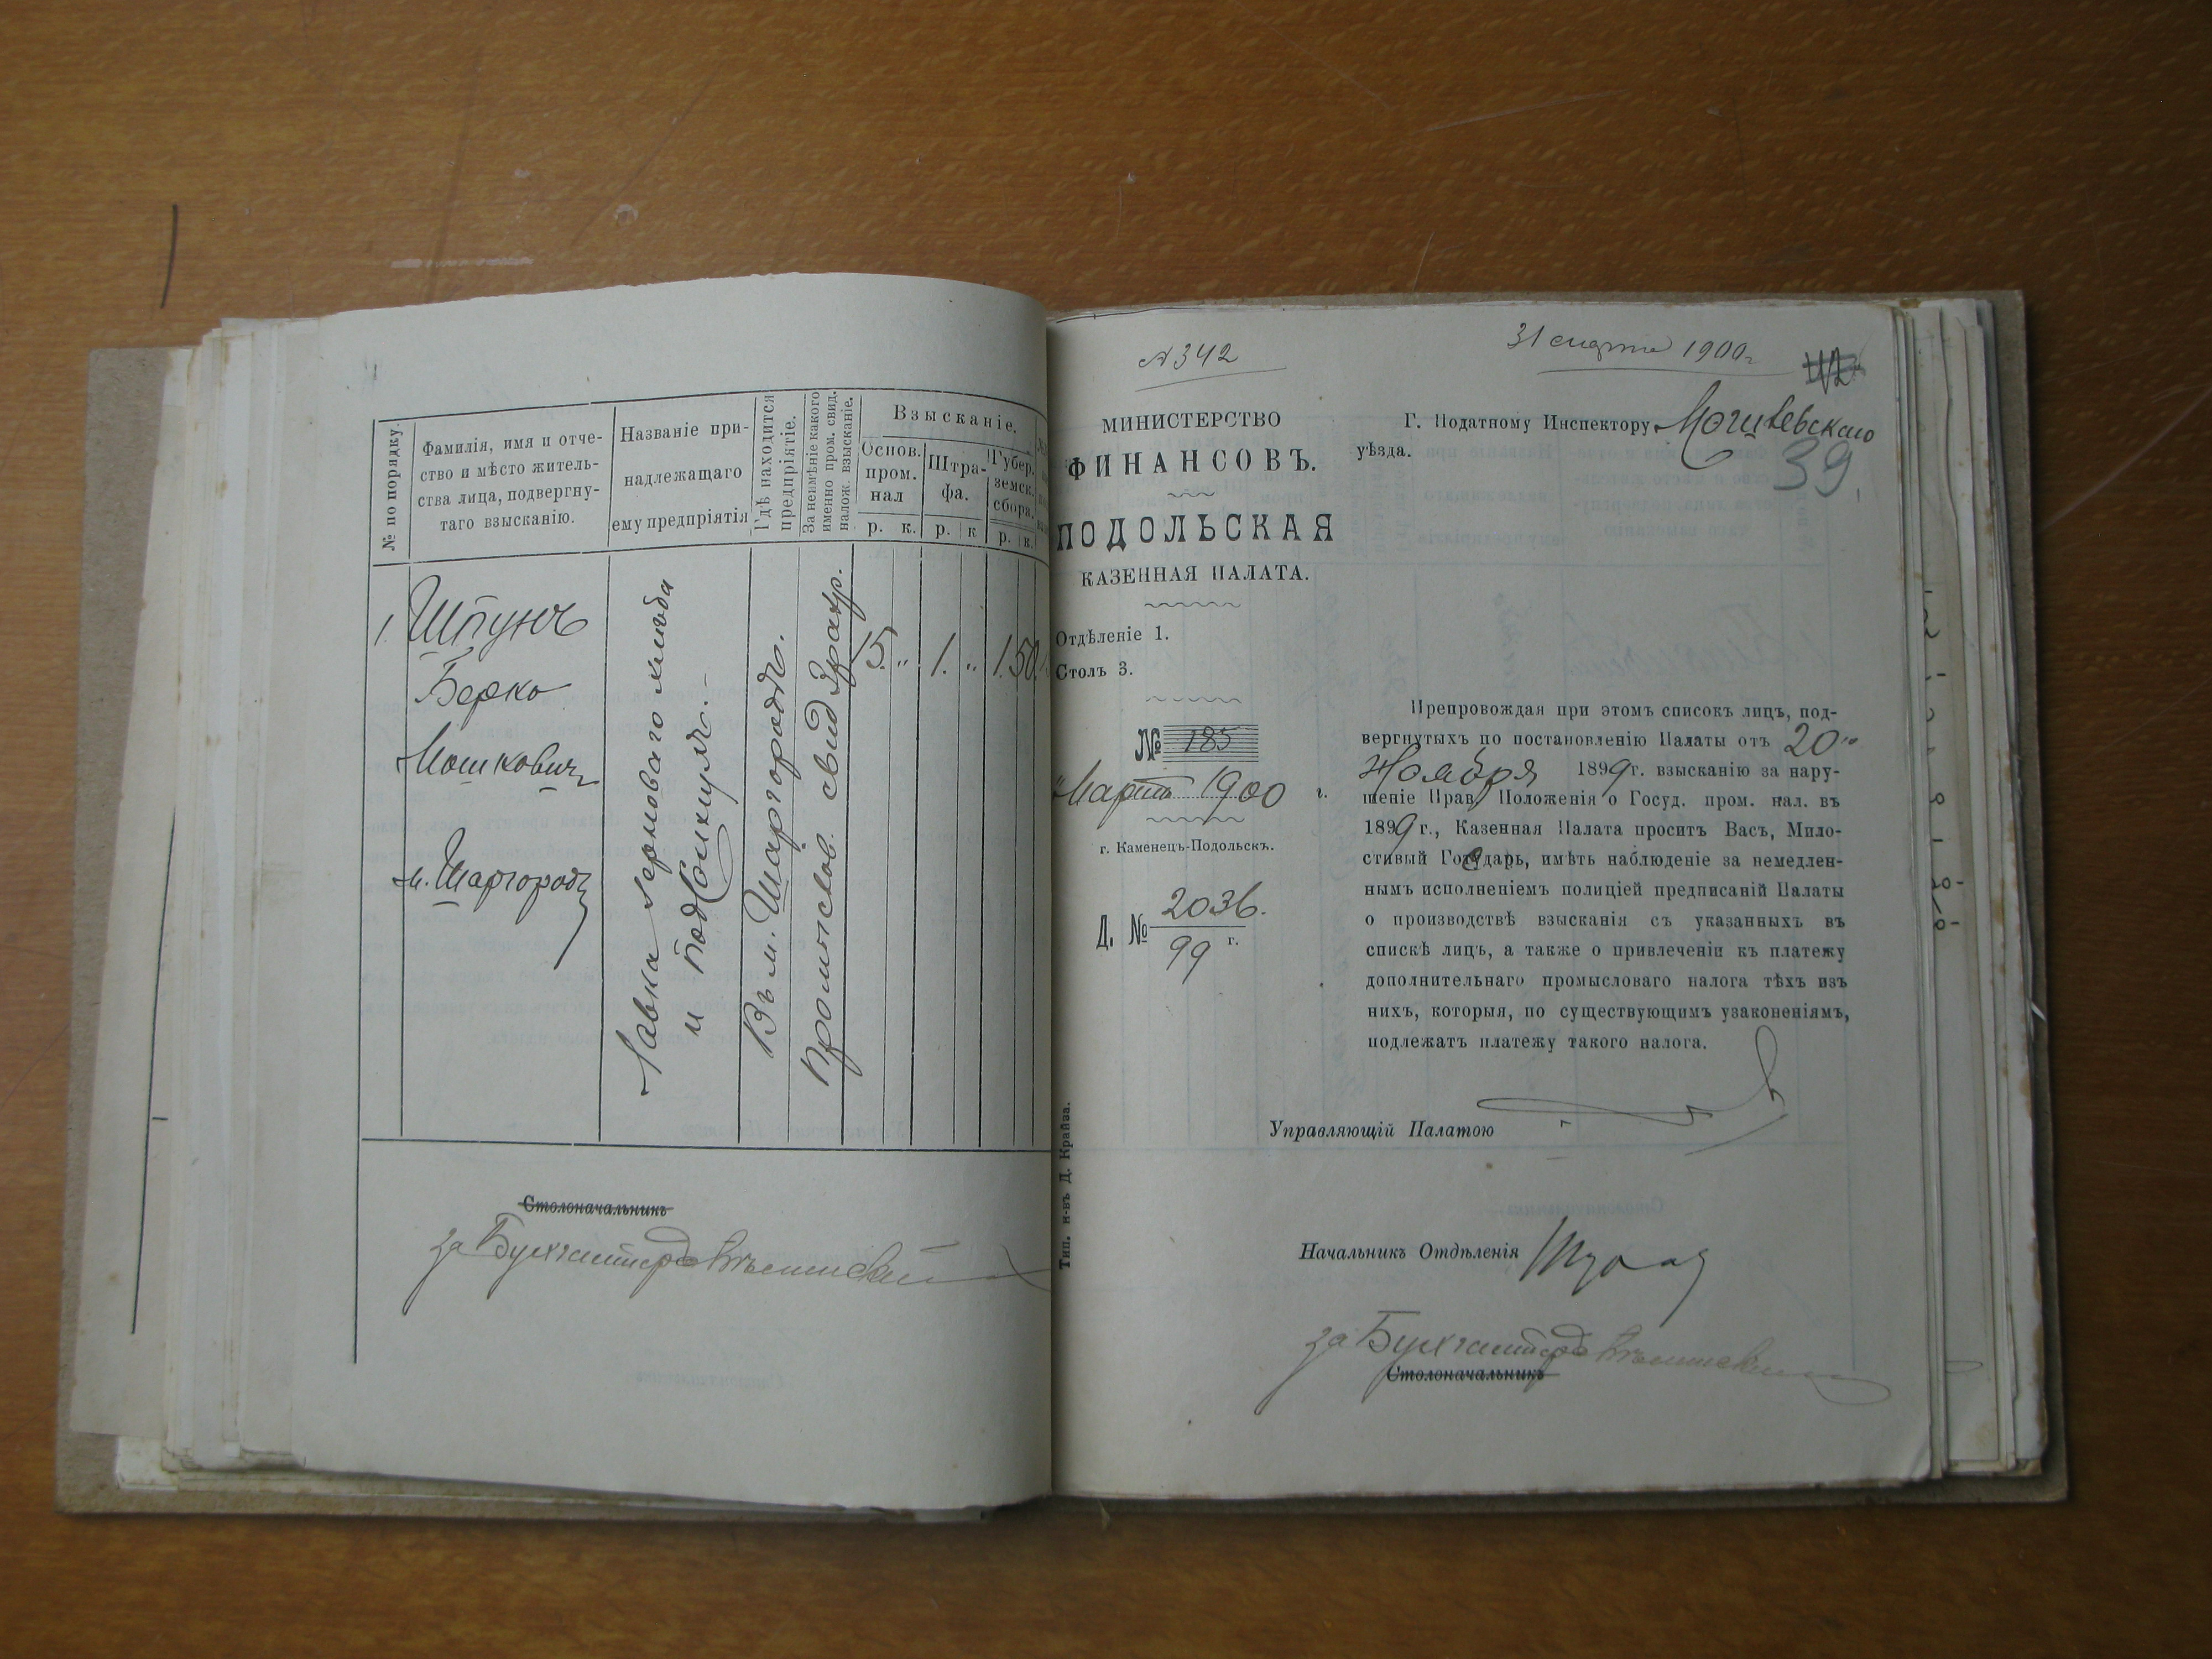 № по порядку.
Фамилія, имя и отче-
ство и мѣсто житель-
ства лица, подвергну-
таго взысканію.
Названіе при-
надлежащаго
ему предпріятія
Гдѣ находится
предпріятіе.
За неимѣніе какого
именно пром. свид.
налож. взысканіе.
Взысканіе.
Основ.
пром.
нал
р. к.
Штра-
фа.
р. к
Губер.
земск.
сбора.
р. к.
1. Шпунтъ
Берко
Мошковичъ
м. Шаргородъ
Лавка зерноваго хлѣба
и подсолнуховъ.
Въ м. Шаргородѣ.
Промыслов. свид 3 разр.
15 " 1. " 1.50
Столоначальникъ
за Бухгалтера
№ 342
31 марта 1900 г
112
МИНИСТЕРСТВО
ФИНАНСОВЪ.
ПОДОЛЬСКАЯ
КАЗЕННАЯ ПАЛАТА.
Отдѣленіе 1.
Столъ 3.
№ 185
Марта 1900 г.
г. Каменецъ-Подольскъ.
Д. № 2036.
99 г.
Тип. н-въ Д. Крайза.
Г. Податному Инспектору Могилевскаго
уѣзда.
39
Препровождая при этомъ списокъ лицъ, под-
вергнутыхъ по постановленію Палаты отъ 20го
Ноября 1899 г. взысканію за нару-
шеніе Прав. Положенія о Госуд. пром. нал. въ
1899 г., Казенная Палата проситъ Васъ, Мило-
стивый Государь, имѣть наблюденіе за немедлен-
нымъ исполненіемъ полиціей предписаній Палаты
о производствѣ взысканія съ указанныхъ въ
спискѣ лицъ, а также о привлеченіи къ платежу
дополнительнаго промысловаго налога тѣхъ изъ
нихъ, которыя, по существующимъ узаконеніямъ,
подлежатъ платежу такого налога.
Управляющій Палатою
Начальникъ Отдѣленія
за Бухгалтера
Столоначальникъ